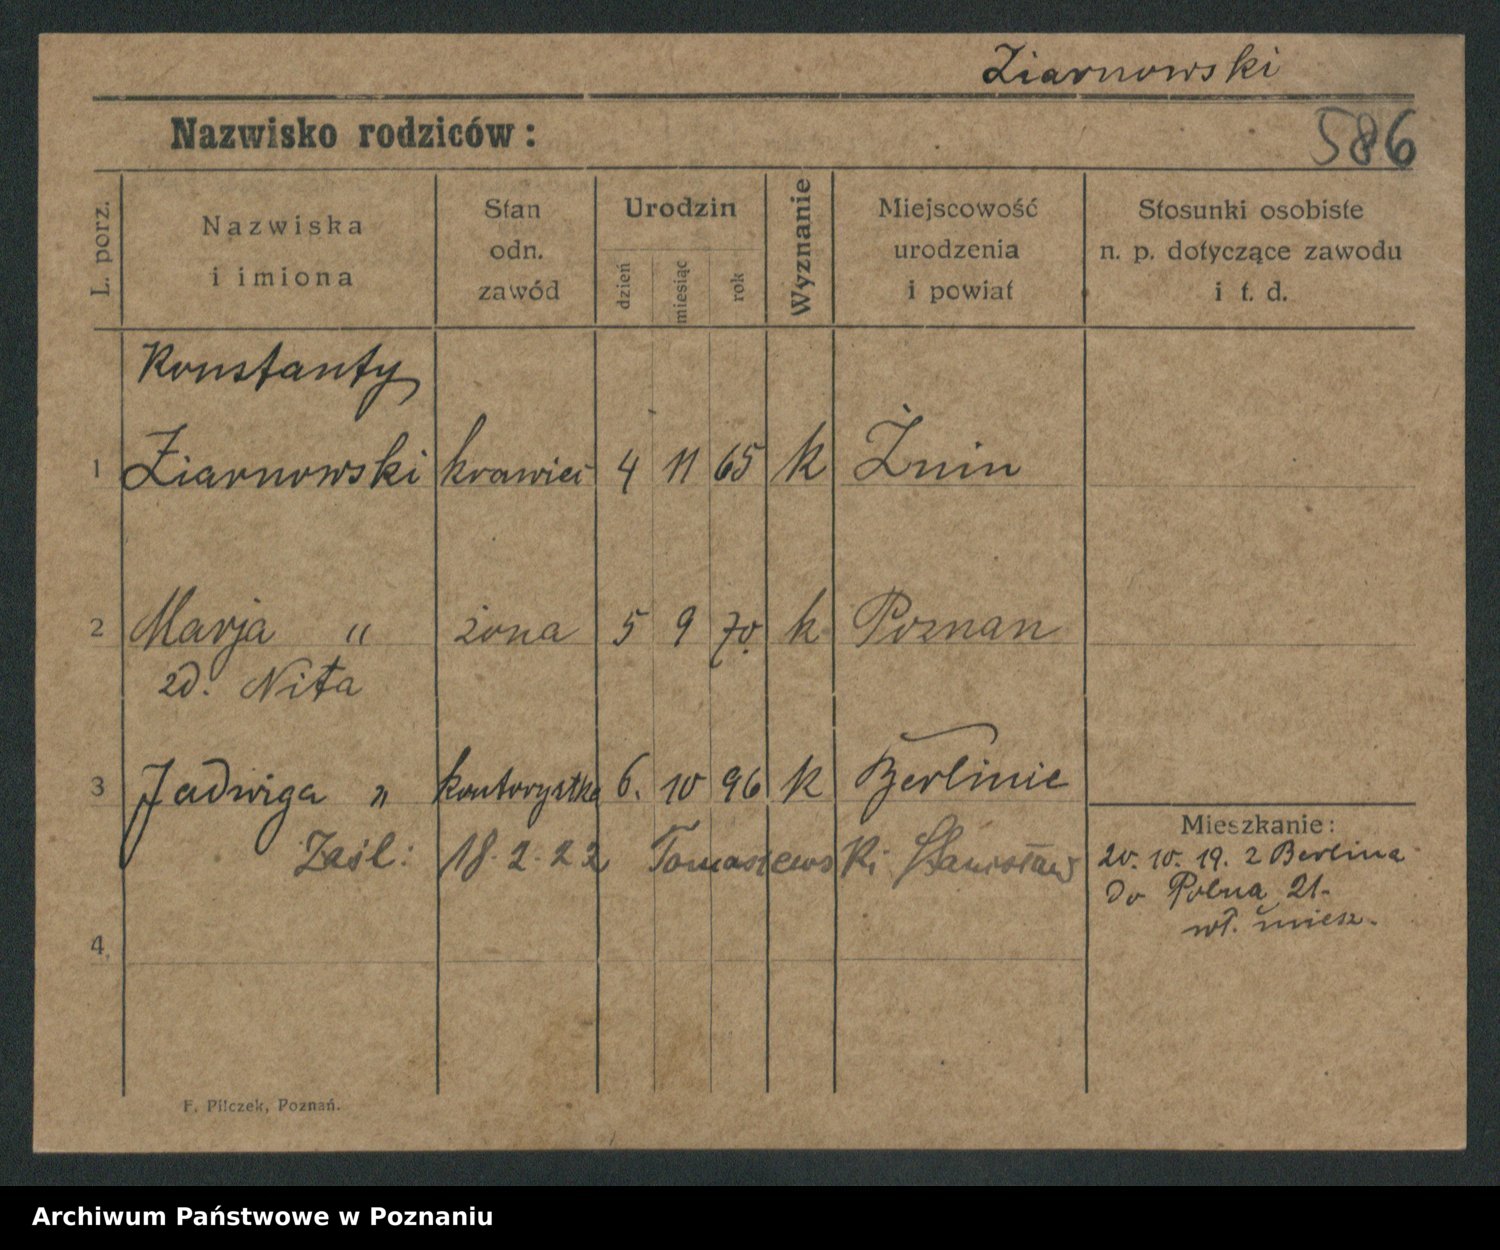 Ziarnowski
Nazwisko rodziców:
586
L. porz.
Nazwiska
i imiona
Stan
odn.
zawód
Urodzin
dzień
miesiąc
rok
Wyznanie
Miejscowość
urodzenia
i powiat
Stosunki osobiste
n. p. dotyczące zawodu
i t. d.
Konstanty
1 Ziarnowski krawiec 4 11 65 k Żnin
2 Marja " żona 5 9 70. k Poznan
zd. Nita
3 Jadwiga " kontorystka 6. 10 96 k Berlinie
Zaśl: 18. 2. 22 Tomaszewski Stanisław
Mieszkanie:
20. 10. 19. z Berlina
do Polna 21-
wł. miesz.
4.
F. Pilczek, Poznań.
Archiwum Państwowe w Poznaniu